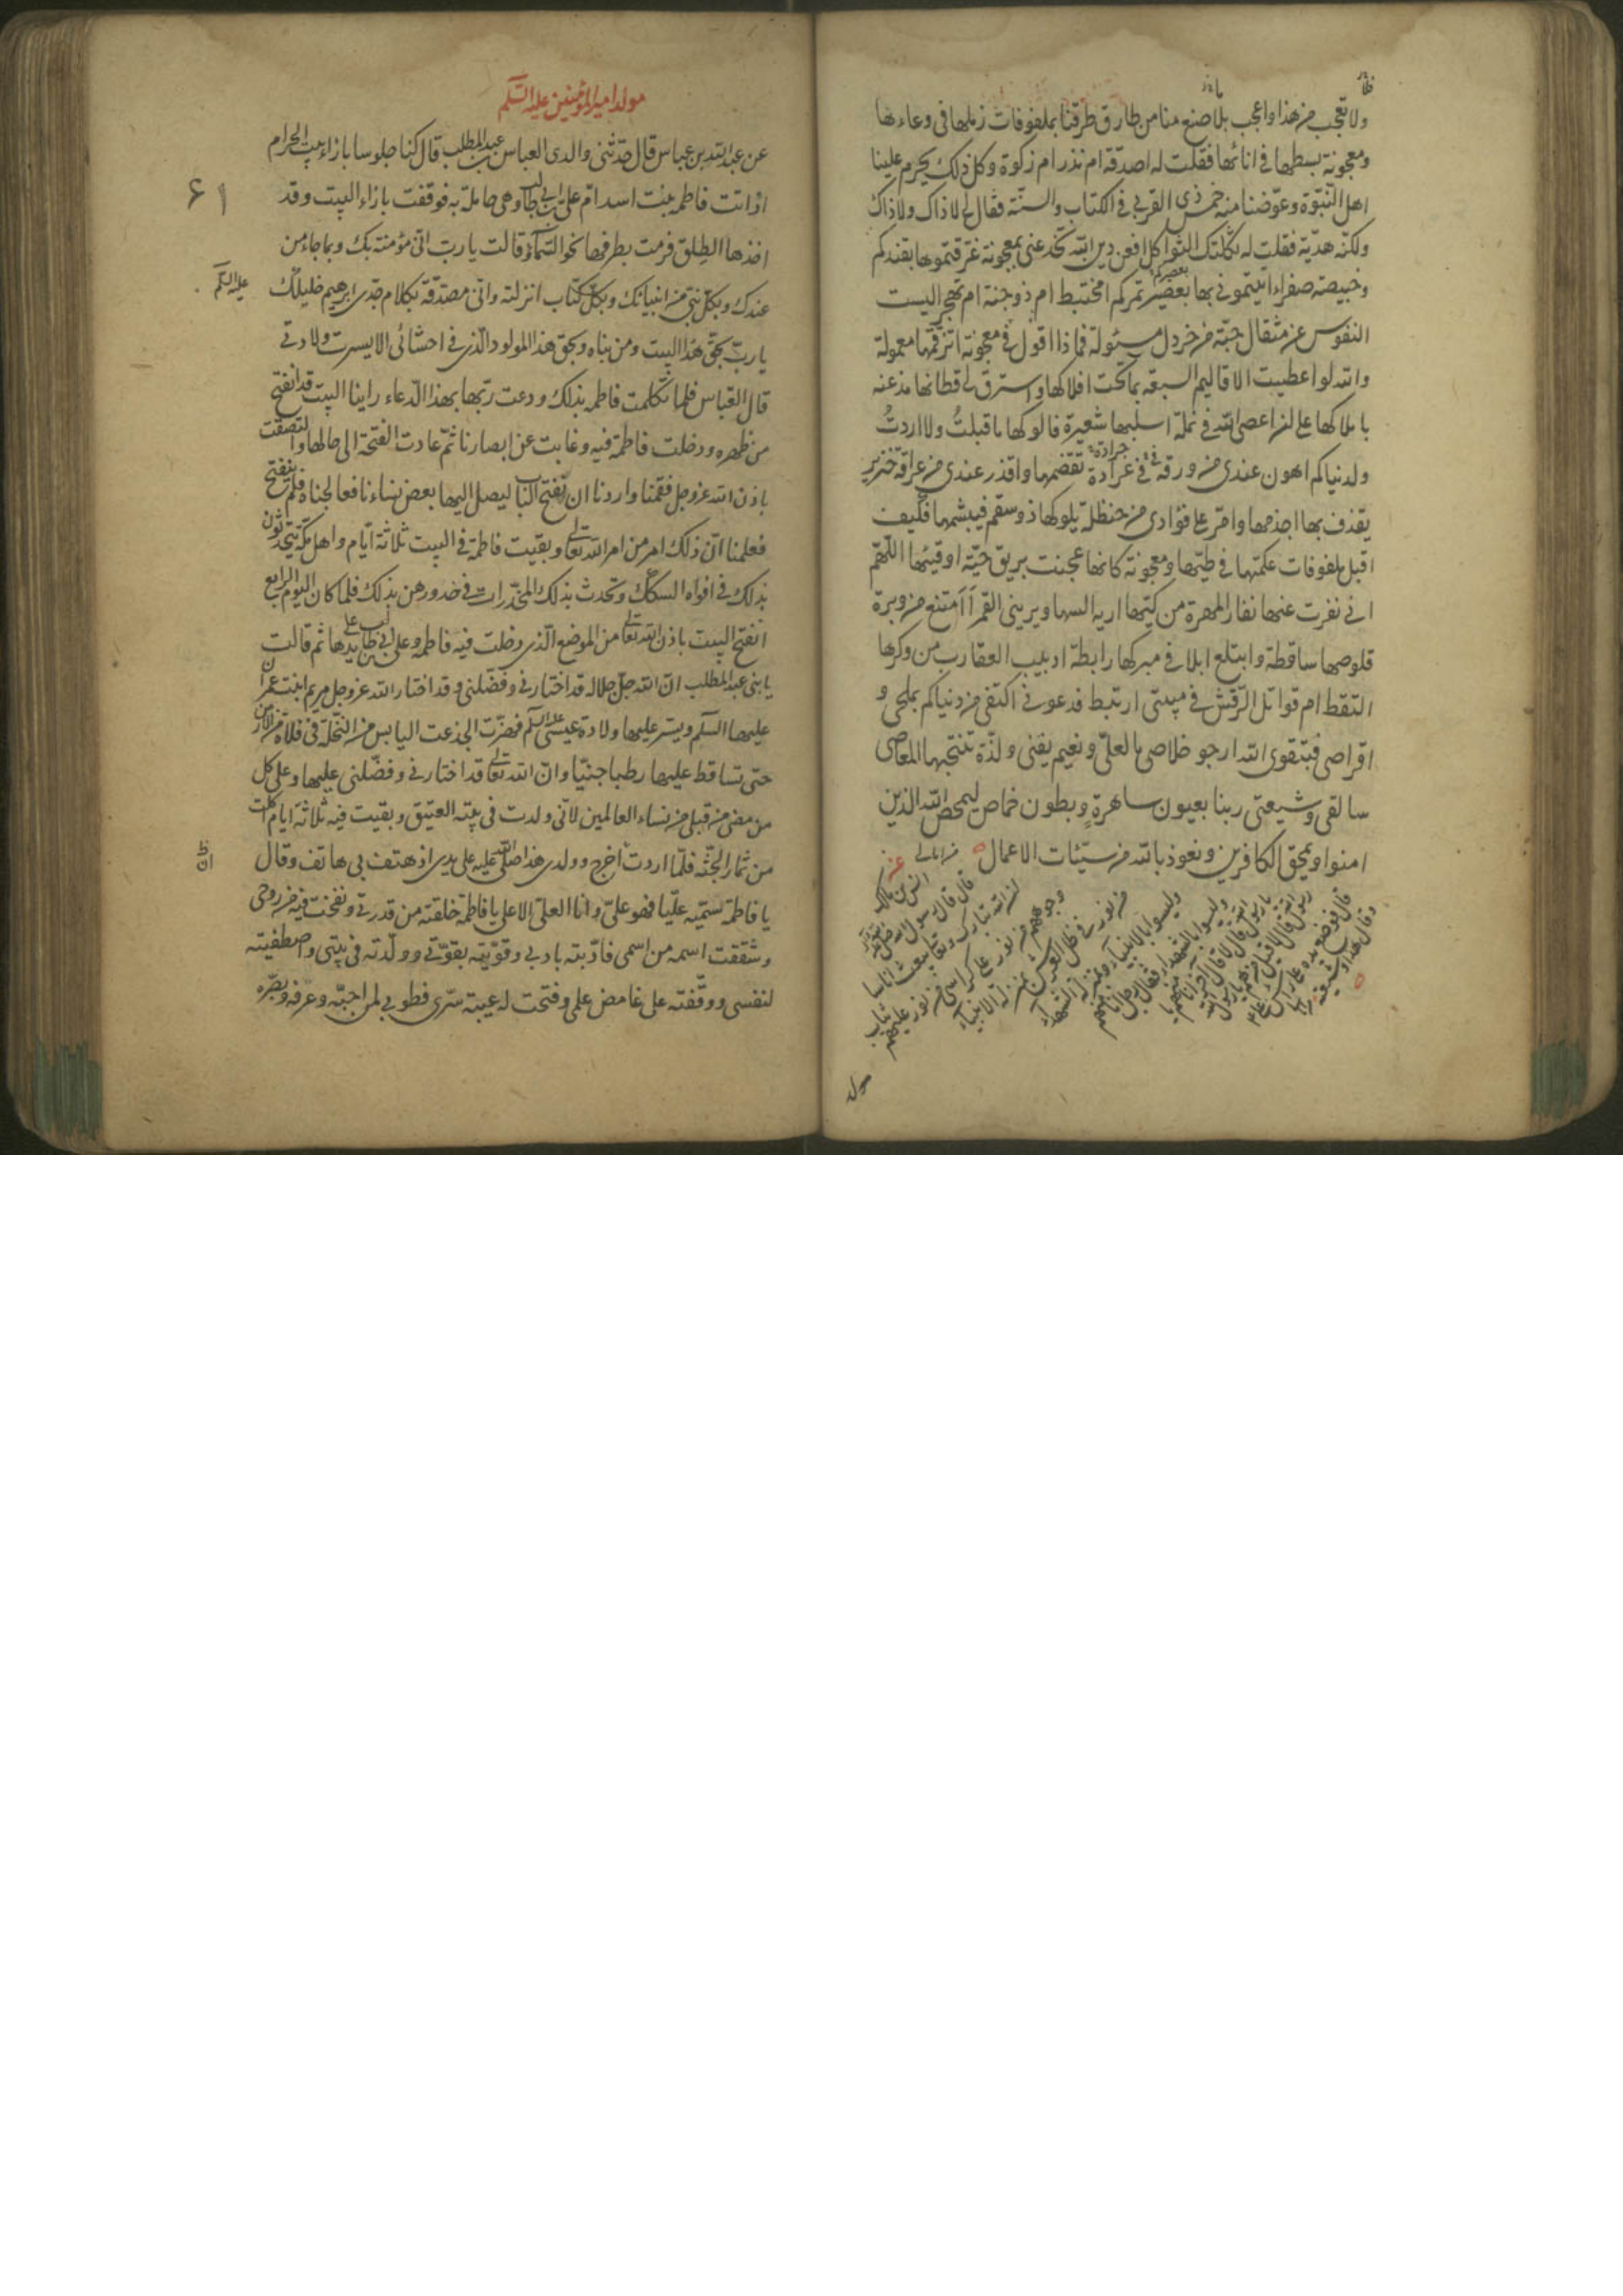 ولا تعجب من هذا واعجب بلا صنع منا من طارق طرقنا بملفوفات زملها فى وعاءها
ومعجونة بسطها فى انائها فقلت له اصدقة ام نذر ام زكوة وكل ذلك يحرم علينا
اهل النبوة وعوضنا منه خمس ذى القربى فى الكتاب والسنة فقال لى لا ذاك ولا ذاك
ولكنه هدية فقلت له ثكلتك الثواكل افعن دين الله تخدعنى بمعجونة غرقتموها بقندكم
وخبيصة صفراء اتيتمونى بها بعصير تمركم امختبط ام ذو جنة ام تهجر اليست
النفوس عن مثقال حبة من خردل مسئولة فماذا اقول فى معجونة اتزقمها معمولة
والله لو اعطيت الاقاليم السبعة بما تحت افلاكها واسترق لى قطانها مذعنة
باملاكها على ان اعصى الله فى نملة اسلبها شعيرة فالوكها ما قبلت ولا اردت
ولدنياكم اهون عندى من ورقة فى فى جرادة تقضمها واقذر عندى من عراقة خنزير
يقذف بها اجذمها وامر على فؤادى من حنظلة يلوكها ذو سقم فيبشمها فكيف
اقبل ملفوفات عكمتها فى طيها ومعجونة كانها عجنت بريق حية او قيئها اللهم
انى نفرت عنها نفار المهرة من كيها اريه السها ويرينى القمر أأمتنع من وبرة
قلوصها ساقطة وابتلع ابلا فى مبركها رابطة ادبيب العقارب من وكرها
التقط ام قواتل الرقش فى مبيتى ارتبط فدعونى اكتفى من دنياكم بملحى و
اقراصى فبتقوى الله ارجو خلاصى ما لعلى ونعيم يفنى ولذة تنتجها المعاصى
سالقى وشيعتى ربنا بعيون ساهرة وبطون خماص ليمحص الله الذين
امنوا ويمحق الكافرين ونعوذ بالله من سيئات الاعمال
من امالى عن
انس بن مالك
قال قال رسول الله صلى الله عليه وآله
ان الله تبارك وتعالى يبعث اناسا
وجوههم من نور على كراسى من نور عليهم ثياب
من نور فى ظل العرش بمنزلة الانبياء
وليسوا بالانبياء وبمنزلة الشهداء
وليسوا بالشهداء فقال رجل انا منهم
يا رسول الله قال لا قال آخر انا منهم يا
رسول الله قال لا قيل من هم يا رسول الله
قال فوضع يده على راس على
وقال هذا وشيعته
مولد
مولد امير المؤمنين عليه السلم
عن عبد الله بن عباس قال حدثنى والدى العباس بن عبد المطلب قال كنا جلوسا بازاء بيت الحرام
اذ اتت فاطمه بنت اسد ام على بن ابى طالب وهى حاملة به فوقفت بازاء البيت وقد
اخذها الطلق فرمت بطرفها نحو السماء وقالت يا رب انى مؤمنة بك وبما جاء من
عندك وبكل نبى من انبيائك وبكل كتاب انزلته وانى مصدقة بكلام جدى ابرهيم خليلك
عليه السلم
يا رب بحق هذا البيت ومن بناه وبحق هذا المولود الذى فى احشائى الا يسرت ولادتى
قال العباس فلما تكلمت فاطمه بذلك ودعت ربها بهذا الدعاء راينا البيت قد انفتح
من ظهره ودخلت فاطمة فيه وغابت عن ابصارنا ثم عادت الفتحة الى حالها والتصقت
باذن الله عز وجل فقمنا واردنا ان نفتح الباب ليصل اليها بعض نساءنا فعالجناه فلم ينفتح
فعلمنا ان ذلك امر من امر الله تعالى وبقيت فاطمة فى البيت ثلاثة ايام واهل مكة يتحدثون
بذلك فى افواه السكك وتحدث بذلك المخدرات فى خدورهن بذلك فلما كان اليوم الرابع
انفتح البيت باذن الله تعالى من الموضع الذى دخلت فيه فاطمه وعلى بن ابى طالب على يدها ثم قالت
يا بنى عبد المطلب ان الله جل جلاله قد اختارنى وفضلنى وقد اختار الله عز وجل مريم ابنت عمران
عليها السلم ويسر عليها ولادة عيسى عليه السلم فهزت الجذعت اليابس من النخلة فى فلاة من الارض
حتى تساقط عليها رطبا جنيا وان الله تعالى قد اختارنى وفضلنى عليها وعلى كل
من مضى من قبلى من نساء العالمين لانى ولدت فى بيته العتيق وبقيت فيه ثلاثة ايام اكلت
من ثمار الجنة فلما اردت اخرج وولدى هذا صلى الله عليه على يدى اذ هتف بى هاتف وقال
يا فاطمة سميه عليا فهو على وانا العلى الاعلى يا فاطمة خلقته من قدرتى ونفخت فيه من روحى
وشققت اسمه من اسمى فادبته بادبى وقويته بقوتى وولدته فى بيتى واصطفيته
لنفسى ووقفته على غامض علمى وفتحت له عيبة سرى فطوبى لمن احبه وعرفه وبصره
۶۱